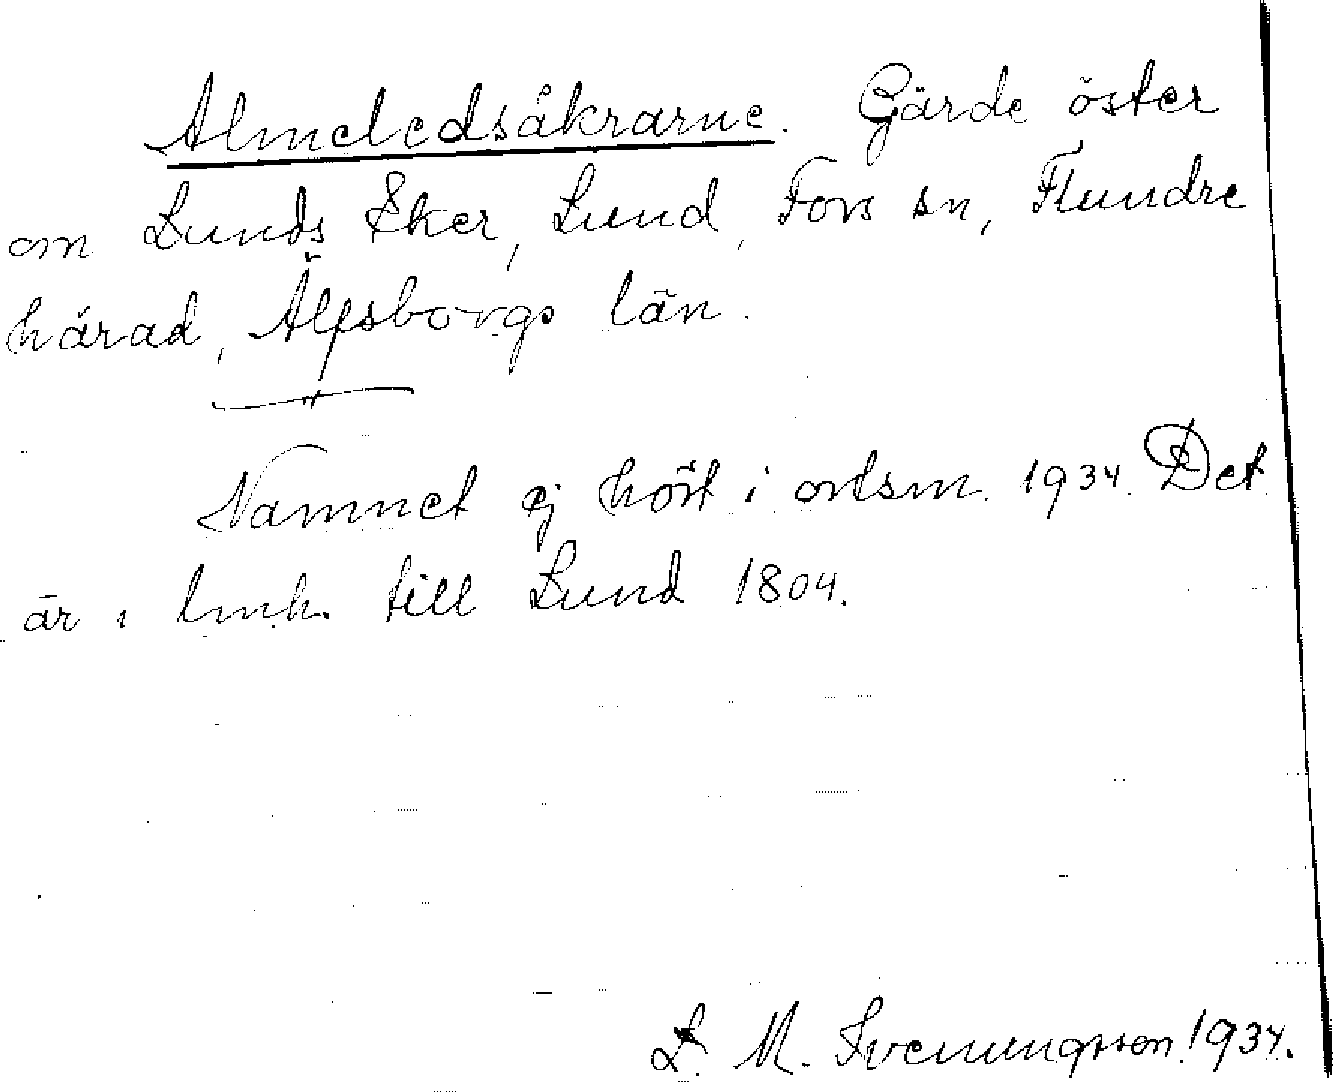 Almeledsåkrarne. Gärde öster
om Lunds Eker, Lund, Fors sn, Flundre
härad, Älfsborgs län.
Namnet ej hört i ortsm. 1934. Det
är i lmh. till Lund 1804.
L. M. Svenungsson. 1934.